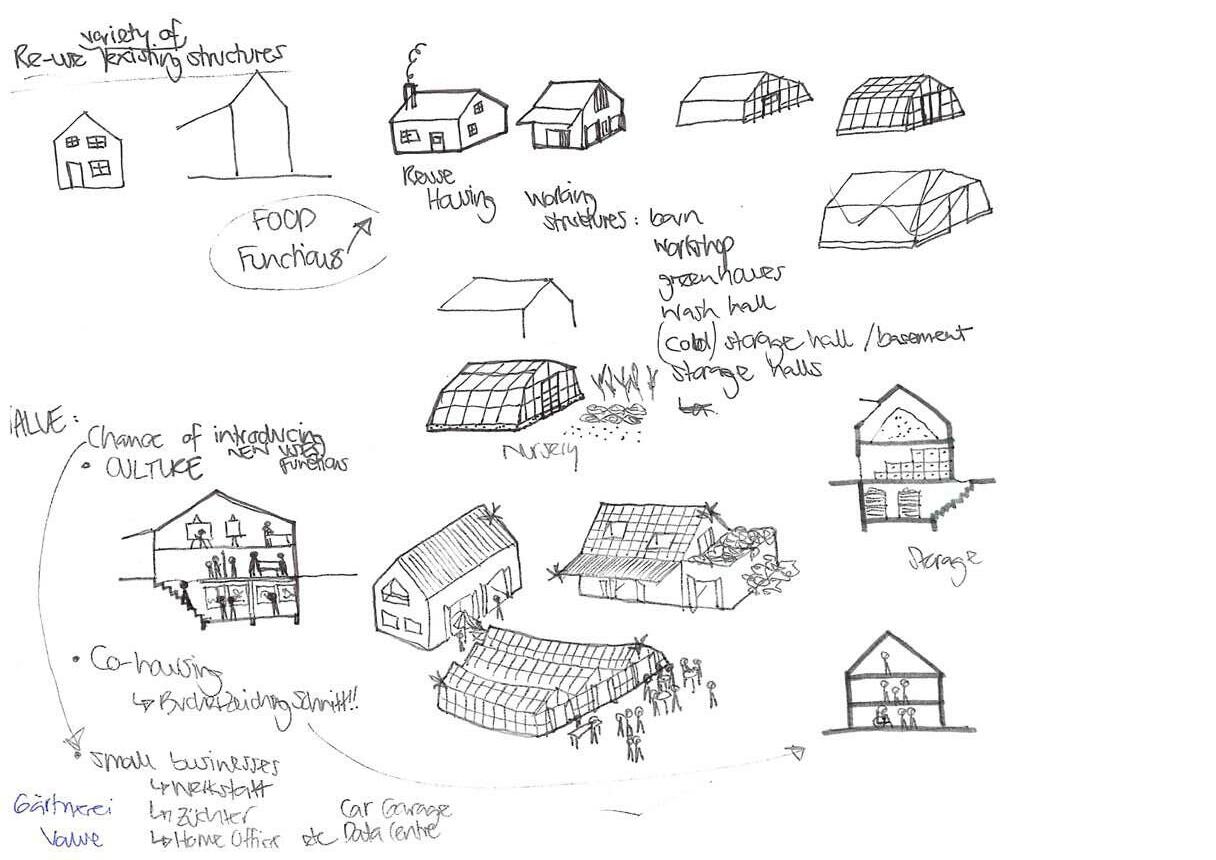 variety of
Re-use existing structures
FOOD
Functions
Reuse
Housing
Working
structures: barn
workshop
greenhouses
wash hall
(Cold) storage hall / basement
storage halls
Nursery
VALUE:
Chance of introducing
NEW USES /
Functions
• CULTURE
Storage
• Co-housing
↳ Schnitt!!
• small businesses
↳ Werkstatt
↳ Züchter
↳ Home Office etc
Car Garage
Data Centre
Gärtnerei
Value